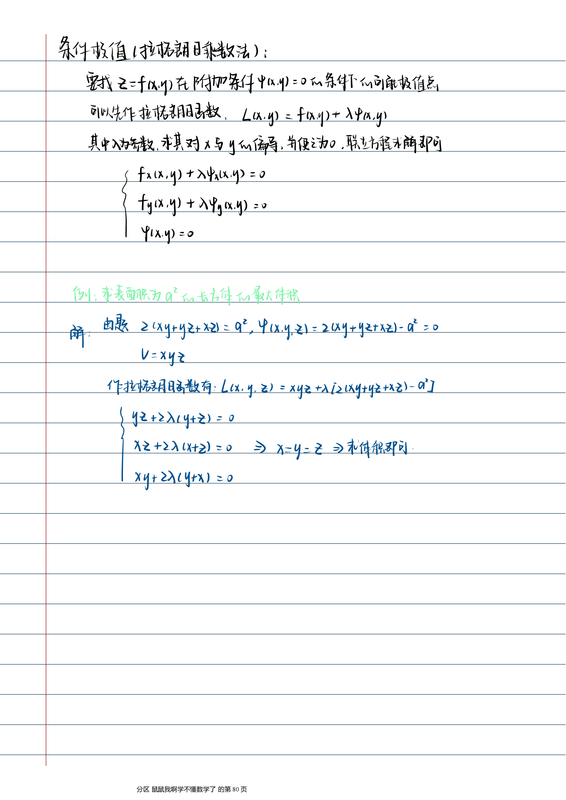 条件极值(拉格朗日乘数法):
要找 z=f(x,y) 在附加条件 φ(x,y)=0 的条件下的可能极值点
可以先作拉格朗日函数, L(x,y) = f(x,y) + λφ(x,y)
其中λ为参数,求其对 x 与 y 的偏导,并使之为0,联立方程求解即可
fx(x,y) + λφx(x,y) = 0
fy(x,y) + λφy(x,y) = 0
φ(x,y) = 0
例:求表面积为 a² 的长方体的最大体积
解: 由题 2(xy+yz+xz) = a², φ(x,y,z) = 2(xy+yz+xz) - a² = 0
V = xyz
作拉格朗日函数有: L(x,y,z) = xyz + λ[2(xy+yz+xz) - a²]
yz + 2λ(y+z) = 0
xz + 2λ(x+z) = 0 ⇒ x=y=z ⇒ 求体积即可.
xy + 2λ(y+x) = 0
分区 鼠鼠我啊学不懂数学了 的第 80 页